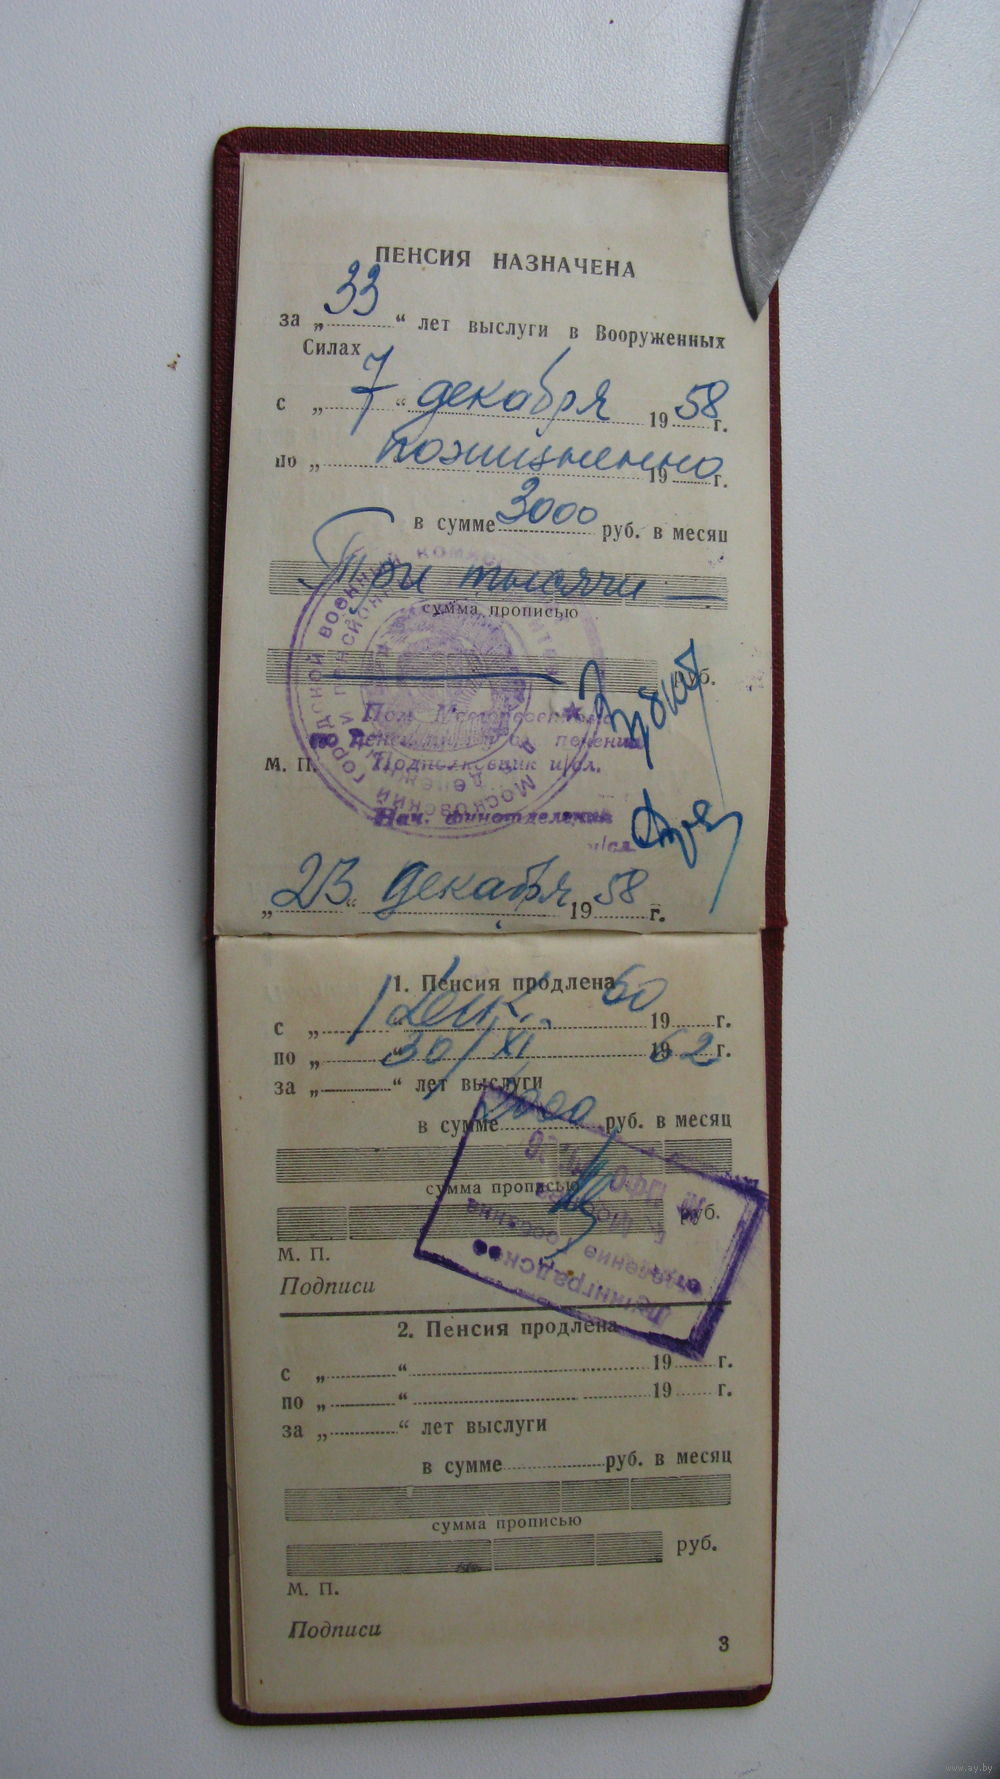 ПЕНСИЯ НАЗНАЧЕНА
за „33“ лет выслуги в Вооруженных
Силах
с „7“ декабря 1958 г.
по „ пожизненно 19 г.
в сумме 3000 руб. в месяц
Три тысячи —
сумма прописью
руб.
по пенсионным
Подполковник и/сл.
М. П.
Нач. финотделения
и/сл.
„23“ декабря 1958 г.
1. Пенсия продлена
с „1“ Дек. 1960 г.
по „30“ XI 1962 г.
за „ “ лет выслуги
в сумме 2000 руб. в месяц
сумма прописью
руб.
М. П.
Ленинградское
отделение Госбанка
Подписи
2. Пенсия продлена
с „ “ 19 г.
по „ “ 19 г.
за „ “ лет выслуги
в сумме руб. в месяц
сумма прописью
руб.
М. П.
Подписи
3
www.ay.by